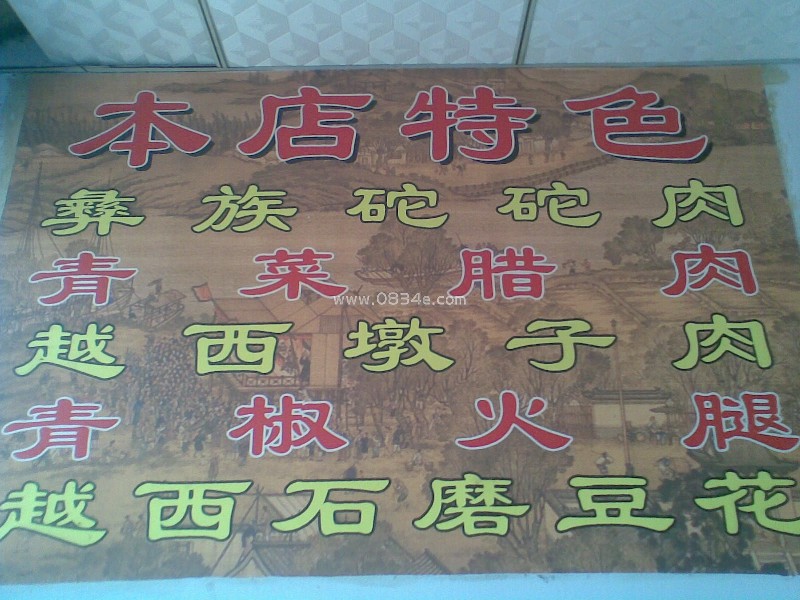 本店特色
彝族砣砣肉
青菜腊肉
www.0834e.com
越西墩子肉
青椒火腿
越西石磨豆花